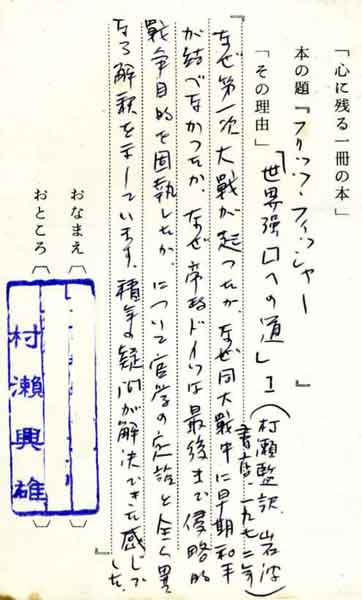 「心に残る一冊の本」
本の題『フリッツ・フィッシャー
「世界強国への道」I(村瀬監訳、岩波
書店、一九七二年)
』
「その理由」
『なぜ第一次大戦が起ったか、なぜ同大戦中に早期和平
が結べなかったか、なぜ帝政ドイツは最後まで侵略的
戦争目的を固執したか、について官学の定説と全く異
なる解釈を下しています。積年の疑問が解決できた感じで
した。』
おなまえ
おところ
村瀬興雄